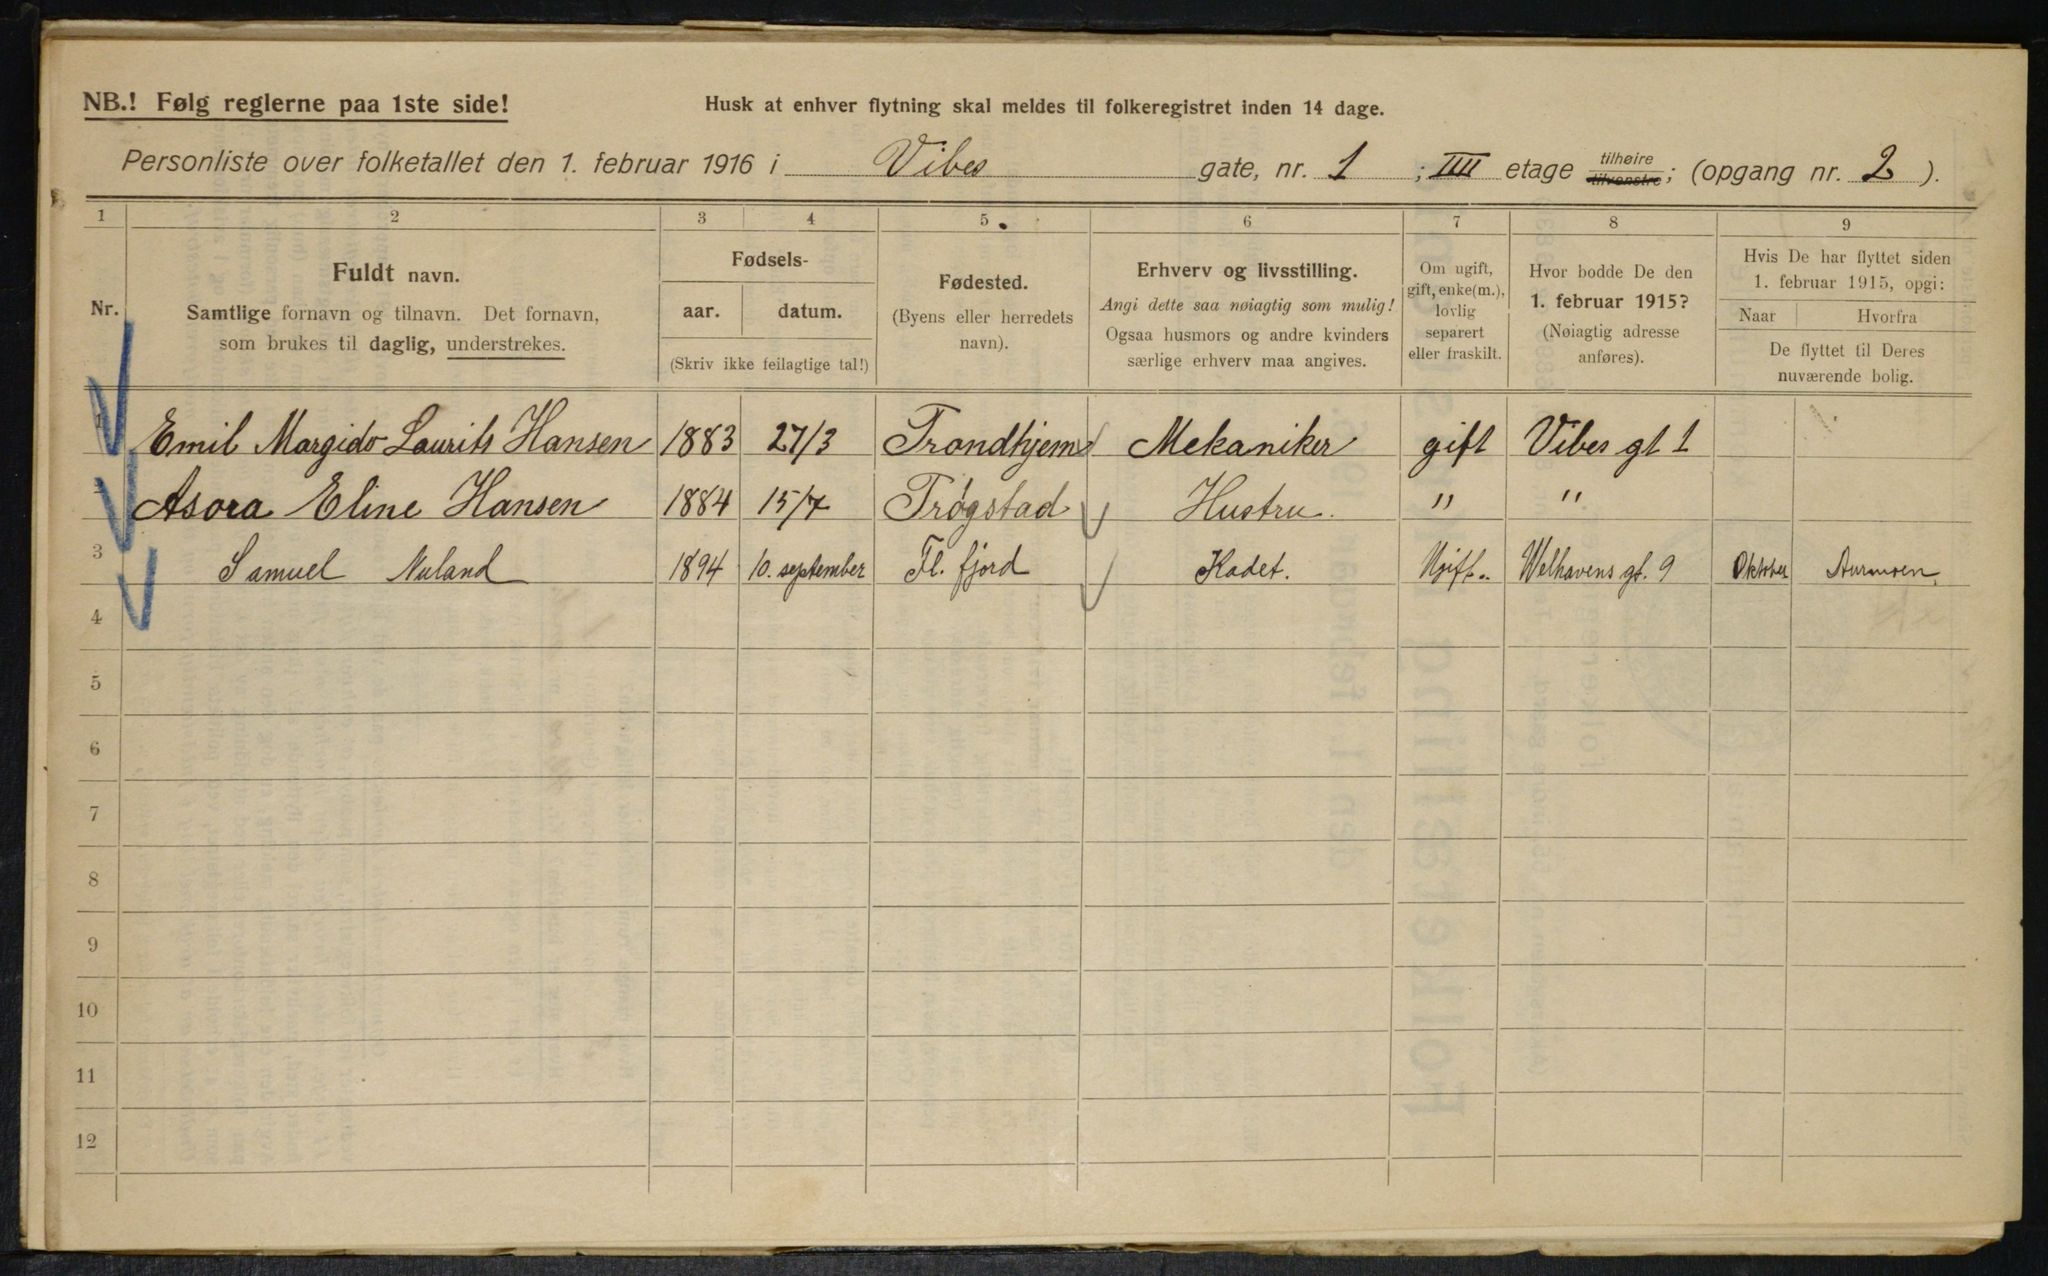 NB.! Følg reglerne paa 1ste side!
Husk at enhver flytning skal meldes til folkeregistret inden 14 dage.
Personliste over folketallet den 1. februar 1916 i Vibes gate, nr. 1 ; IIII etage tilhøire tilvenstre; (opgang nr. 2).
1 2 3 4 5. 6 7 8 9
Nr.
Fuldt navn.
Samtlige fornavn og tilnavn. Det fornavn,
som brukes til daglig, understrekes.
Fødsels-
aar. datum.
(Skriv ikke feilagtige tal!)
Fødested.
(Byens eller herredets
navn).
Erhverv og livsstilling.
Angi dette saa nøiagtig som mulig!
Ogsaa husmors og andre kvinders
særlige erhverv maa angives.
Om ugift,
gift, enke(m.),
lovlig
separert
eller fraskilt.
Hvor bodde De den
1. februar 1915?
(Nøiagtig adresse
anføres).
Hvis De har flyttet siden
1. februar 1915, opgi:
Naar Hvorfra
De flyttet til Deres
nuværende bolig.
1 Emil Margido Laurits Hansen 1883 27/3 Trondhjem Mekaniker gift Vibes gt 1
2 Asora Eline Hansen 1884 15/7 Trøgstad Hustru. " "
3 Samuel Nuland 1894 10. september Fl. fjord Kadet. Ugift.. Welhavens gt. 9 Oktober
4
5
6
7
8
9
10
11
12